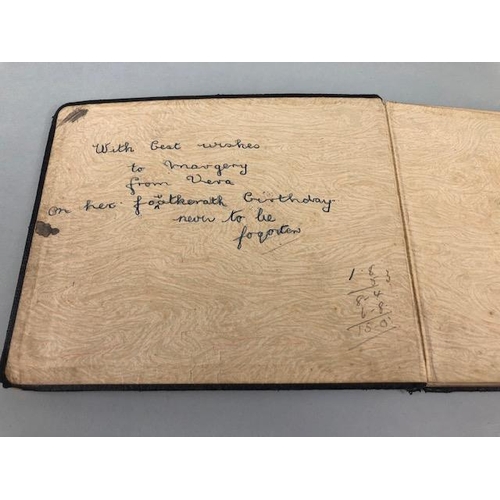 With best wishes
to Margery
from Vera
on her birthday
never to be
fogorten
1-8
8-4
6-8
15-0